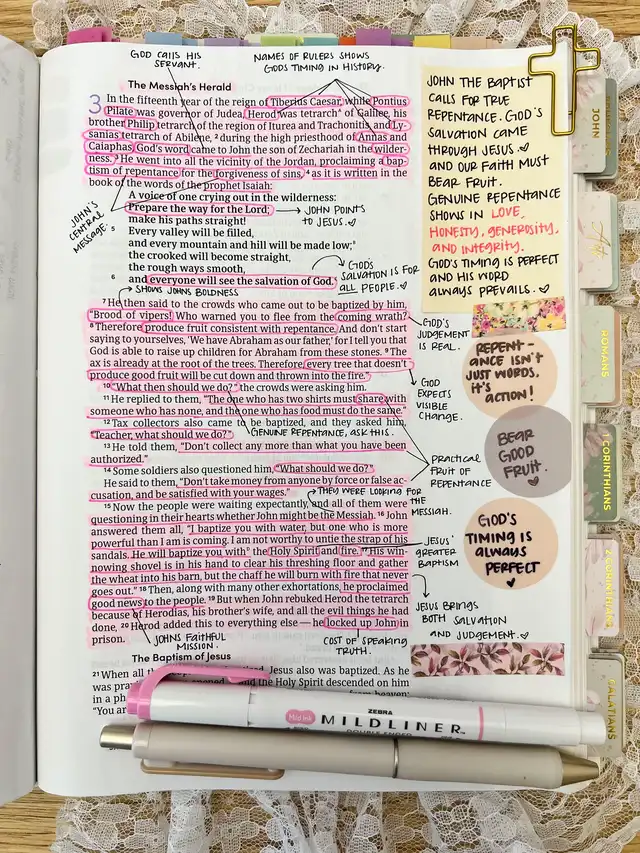 GOD CALLS HIS
SERVANT.
NAMES OF RULERS SHOWS
GODS TIMING IN HISTORY.
The Messiah's Herald
3 In the fifteenth year of the reign of Tiberius Caesar, while Pontius
Pilate was governor of Judea, Herod was tetrarch of Galilee, his
brother Philip tetrarch of the region of Iturea and Trachonitis, and Ly-
sanias tetrarch of Abilene, 2 during the high priesthood of Annas and
Caiaphas, God's word came to John the son of Zechariah in the wilder-
ness. 3 He went into all the vicinity of the Jordan, proclaiming a bap-
tism of repentance for the forgiveness of sins, 4 as it is written in the
book of the words of the prophet Isaiah:
A voice of one crying out in the wilderness:
Prepare the way for the Lord;
make his paths straight!
5 Every valley will be filled,
and every mountain and hill will be made low;
the crooked will become straight,
the rough ways smooth,
6 and everyone will see the salvation of God.
JOHN'S
CENTRAL
MESSAGE.
JOHN POINTS
TO JESUS.
GOD'S
SALVATION IS FOR
ALL PEOPLE.
SHOWS JOHNS BOLDNESS
7 He then said to the crowds who came out to be baptized by him,
"Brood of vipers! Who warned you to flee from the coming wrath?
8 Therefore produce fruit consistent with repentance. And don't start
saying to yourselves, 'We have Abraham as our father,' for I tell you that
God is able to raise up children for Abraham from these stones. 9 The
ax is already at the root of the trees. Therefore, every tree that doesn't
produce good fruit will be cut down and thrown into the fire."
10 "What then should we do?" the crowds were asking him.
11 He replied to them, "The one who has two shirts must share with
someone who has none, and the one who has food must do the same."
12 Tax collectors also came to be baptized, and they asked him,
"Teacher, what should we do?"
GENUINE REPENTANCE, ASK THIS.
13 He told them, "Don't collect any more than what you have been
authorized."
14 Some soldiers also questioned him, "What should we do?"
He said to them, "Don't take money from anyone by force or false ac-
cusation, and be satisfied with your wages."
THEY WERE LOOKING FOR
THE
MESSIAH.
15 Now the people were waiting expectantly, and all of them were
questioning in their hearts whether John might be the Messiah. 16 John
answered them all, "I baptize you with water, but one who is more
powerful than I am is coming. I am not worthy to untie the strap of his
sandals. He will baptize you with the Holy Spirit and fire. 17 His win-
nowing shovel is in his hand to clear his threshing floor and gather
the wheat into his barn, but the chaff he will burn with fire that never
goes out." 18 Then, along with many other exhortations, he proclaimed
good news to the people. 19 But when John rebuked Herod the tetrarch
because of Herodias, his brother's wife, and all the evil things he had
done, 20 Herod added this to everything else — he locked up John in
prison.
JOHNS FAITHFUL
MISSION.
COST OF SPEAKING
TRUTH.
The Baptism of Jesus
21 When all the Jesus also was baptized. As he
was and the Holy Spirit descended on him
in a from heaven:
"You
GOD'S
JUDGEMENT
IS REAL.
GOD
EXPECTS
VISIBLE
CHANGE.
PRACTICAL
FRUIT OF
REPENTANCE
JESUS'
GREATER
BAPTISM
JESUS BRINGS
BOTH SALVATION
AND JUDGEMENT.
JOHN THE BAPTIST
CALLS FOR TRUE
REPENTANCE. GOD'S
SALVATION CAME
THROUGH JESUS.
AND OUR FAITH MUST
BEAR FRUIT.
GENUINE REPENTANCE
SHOWS IN LOVE,
HONESTY, GENEROSITY,
AND INTEGRITY.
GOD'S TIMING IS PERFECT
AND HIS WORD
ALWAYS PREVAILS.
REPENT-
ANCE ISN'T
JUST WORDS,
it's
ACTION!
BEAR
GOOD
FRUIT.
GOD'S
TIMING IS
ALWAYS
PERFECT
JOHN
Acts
ROMANS
CORINTHIANS
2 CORINTHIANS
GALATIANS
Mild ink
ZEBRA
MILDLINER
DOUBLE ENDED